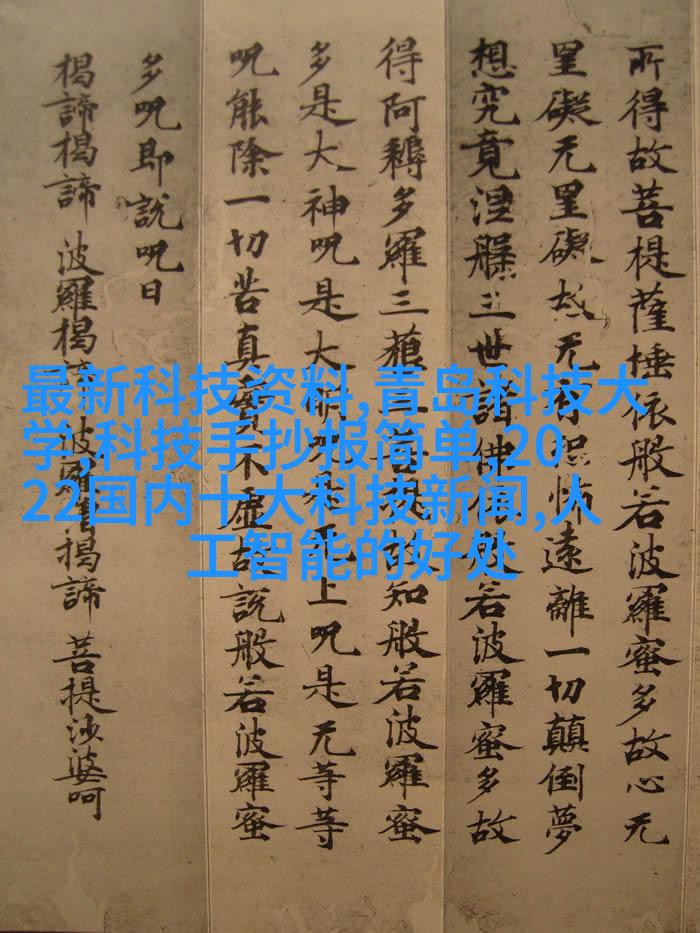 所得故菩提薩埵依般若波羅蜜多故心无
罣礙无罣礙故无有恐怖遠離一切顛倒夢
想究竟涅槃三世諸佛依般若波羅蜜多故
得阿耨多羅三藐三菩提故知般若波羅蜜
多是大神呪是大明呪是无上呪是无等等
呪能除一切苦真實不虛故說般若波羅蜜
多呪即說呪曰
揭諦揭諦 波羅揭諦 波羅僧揭諦 菩提沙婆呵
最新科技资料,青岛科技大
学,科技手抄报简单,20
22国内十大科技新闻,人
工智能的好处